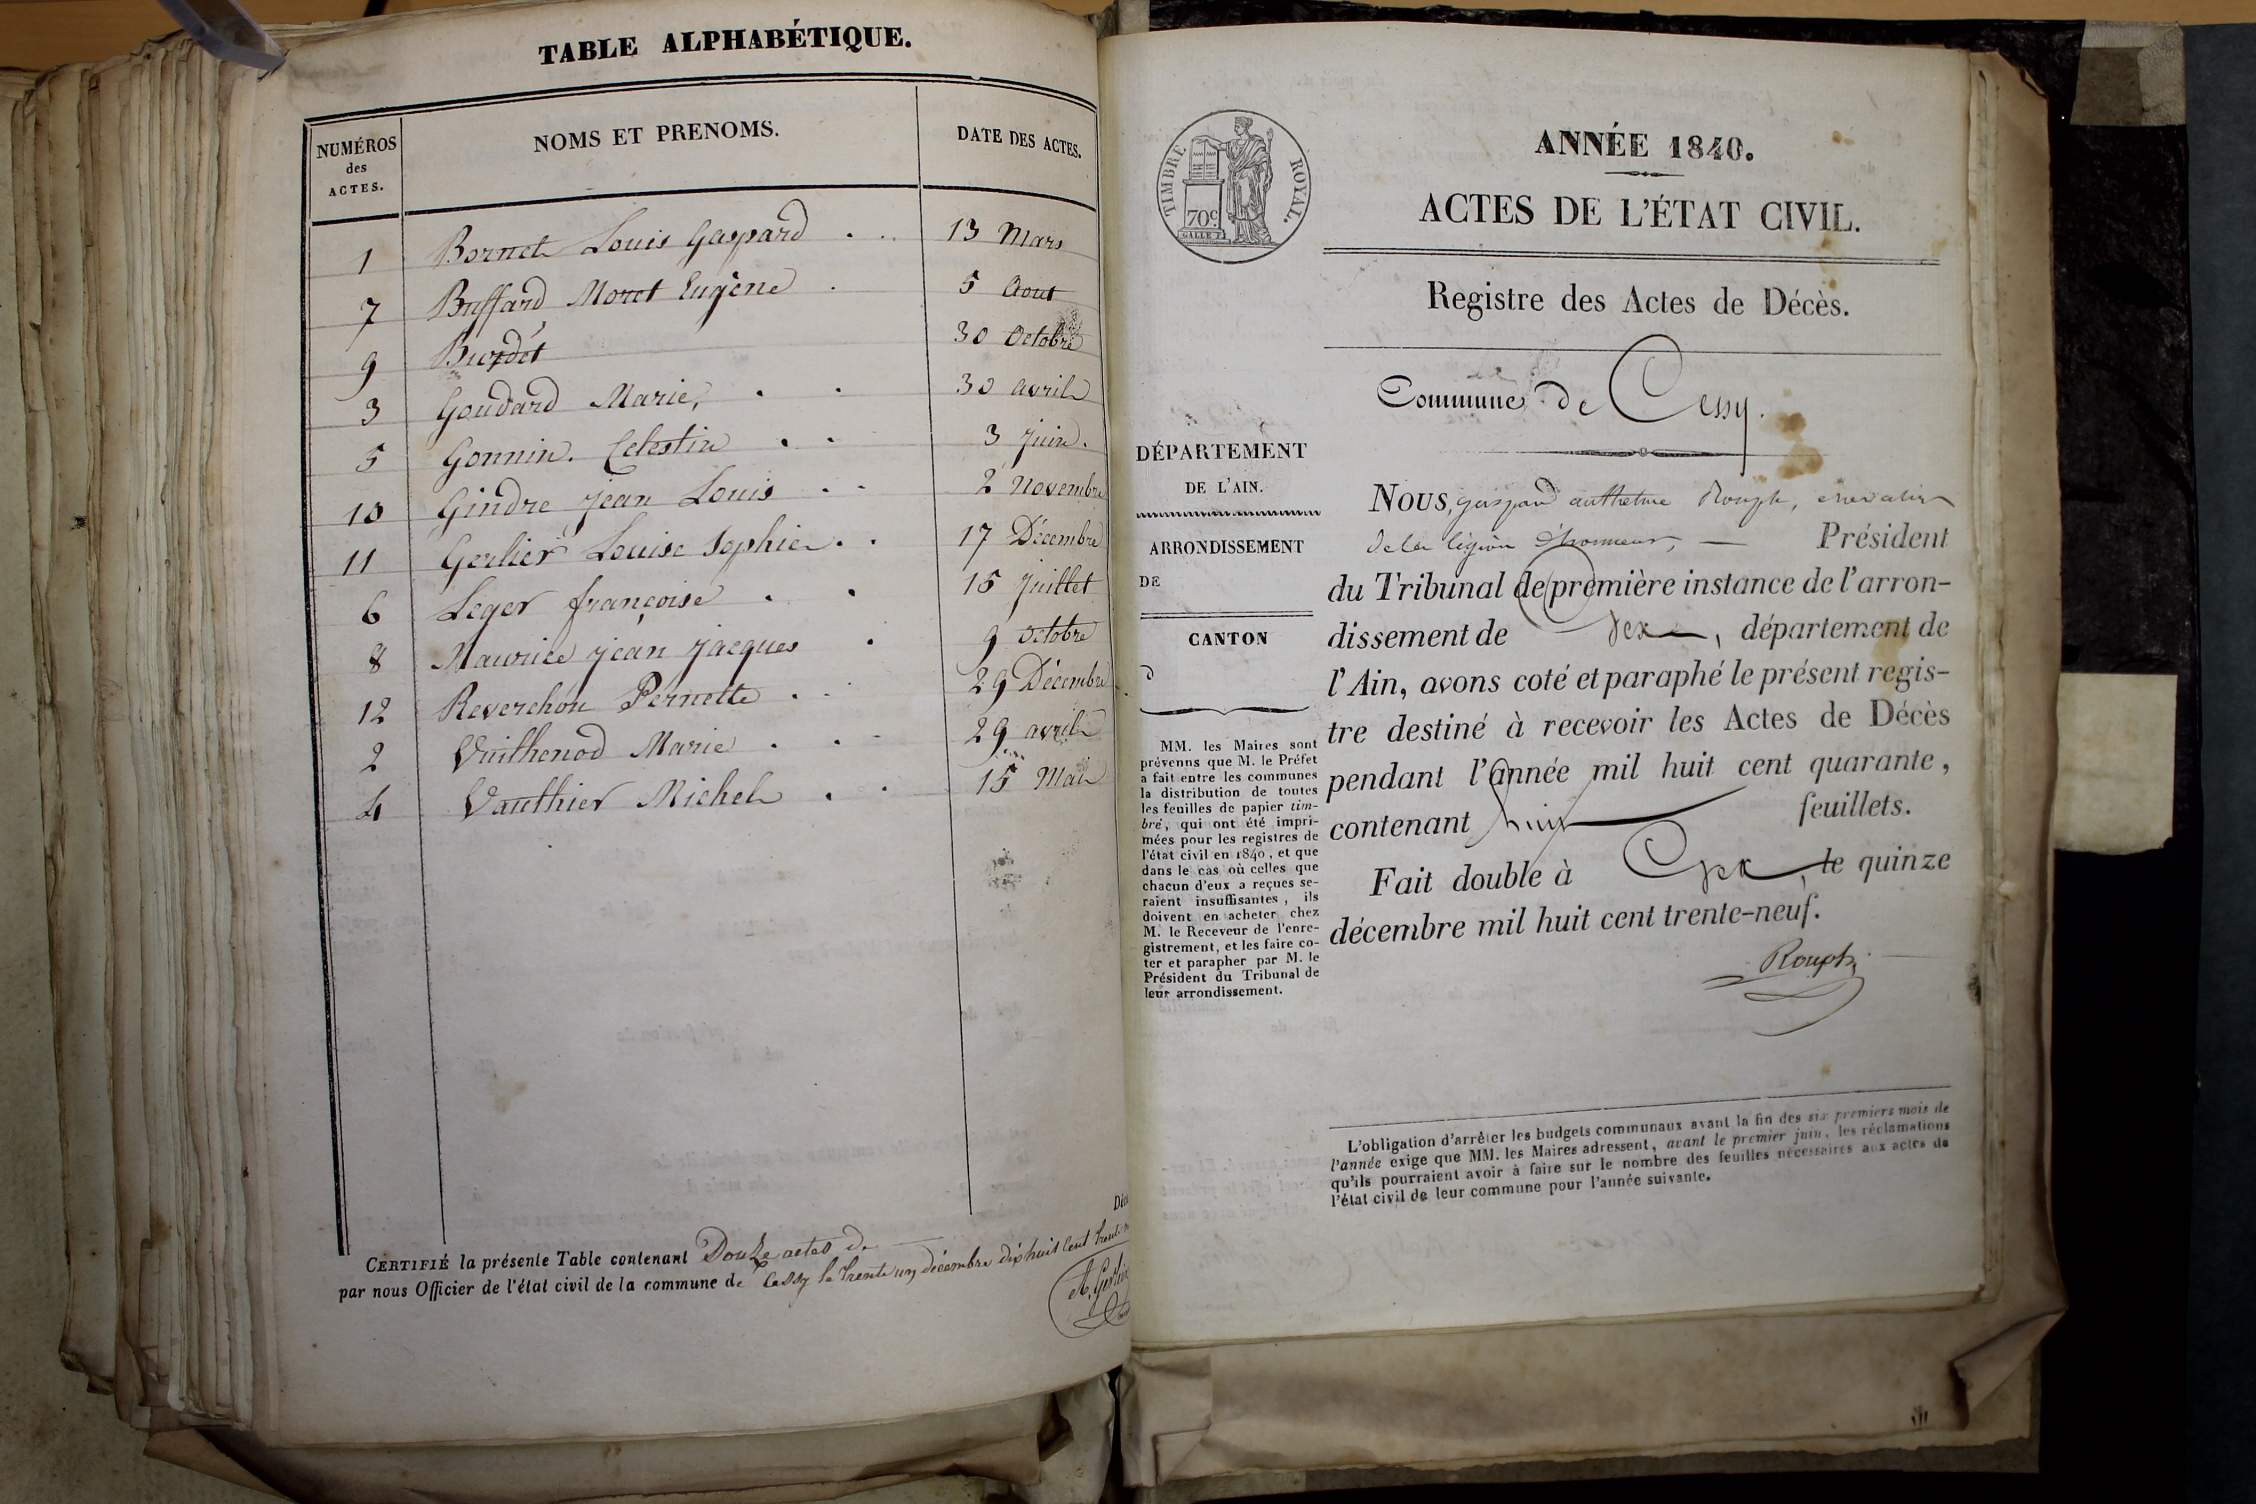 TABLE ALPHABÉTIQUE.
NUMÉROS des ACTES. NOMS ET PRENOMS. DATE DES ACTES.
1 Bornet Louis Gaspard . . 13 Mars
7 Buffard Moret Eugène . 5 Aout
9 Burdet 30 Octobre
3 Goudard Marie, . . 30 avril
5 Gonnin. Celestin . . 3 Juin.
10 Gindre Jean Louis . . 2 Novembre
11 Gerlier Louise Sophie . . 17 Décembre
6 Leger françoise . . 15 Juillet
8 Maurice Jean Jacques . 9 Octobre
12 Reverchon Pernette . . 29 Décembre
2 Vuithenod Marie . . 29 avril
4 Vauthier Michel . . 15 Mai
CERTIFIÉ la présente Table contenant Douze actes de
par nous Officier de l'état civil de la commune de Cessy le trente un décembre dix huit cent trente
TIMBRE ROYAL.
70c
ANNÉE 1840.
ACTES DE L'ÉTAT CIVIL.
Registre des Actes de Décès.
Commune de Cessy.
DÉPARTEMENT
DE L'AIN.
ARRONDISSEMENT
DE
CANTON
D
MM. les Maires sont
prévenus que M. le Préfet
a fait entre les communes
la distribution de toutes
les feuilles de papier tim-
bré, qui ont été impri-
mées pour les registres de
l'état civil en 1840, et que
dans le cas où celles que
chacun d'eux a reçues se-
raient insuffisantes, ils
doivent en acheter chez
M. le Receveur de l'enre-
gistrement, et les faire co-
ter et parapher par M. le
Président du Tribunal de
leur arrondissement.
NOUS, gaspard Rouph, chevalier
de la légion d'honneur, — Président
du Tribunal de première instance de l'arron-
dissement de Gex, département de
l'Ain, avons coté et paraphé le présent regis-
tre destiné à recevoir les Actes de Décès
pendant l'année mil huit cent quarante,
contenant huit feuillets.
Fait double à Gex, le quinze
décembre mil huit cent trente-neuf.
Rouph
L'obligation d'arrêter les budgets communaux avant la fin des six premiers mois de
l'année exige que MM. les Maires adressent, avant le premier juin, les réclamations
qu'ils pourraient avoir à faire sur le nombre des feuilles nécessaires aux actes de
l'état civil de leur commune pour l'année suivante.